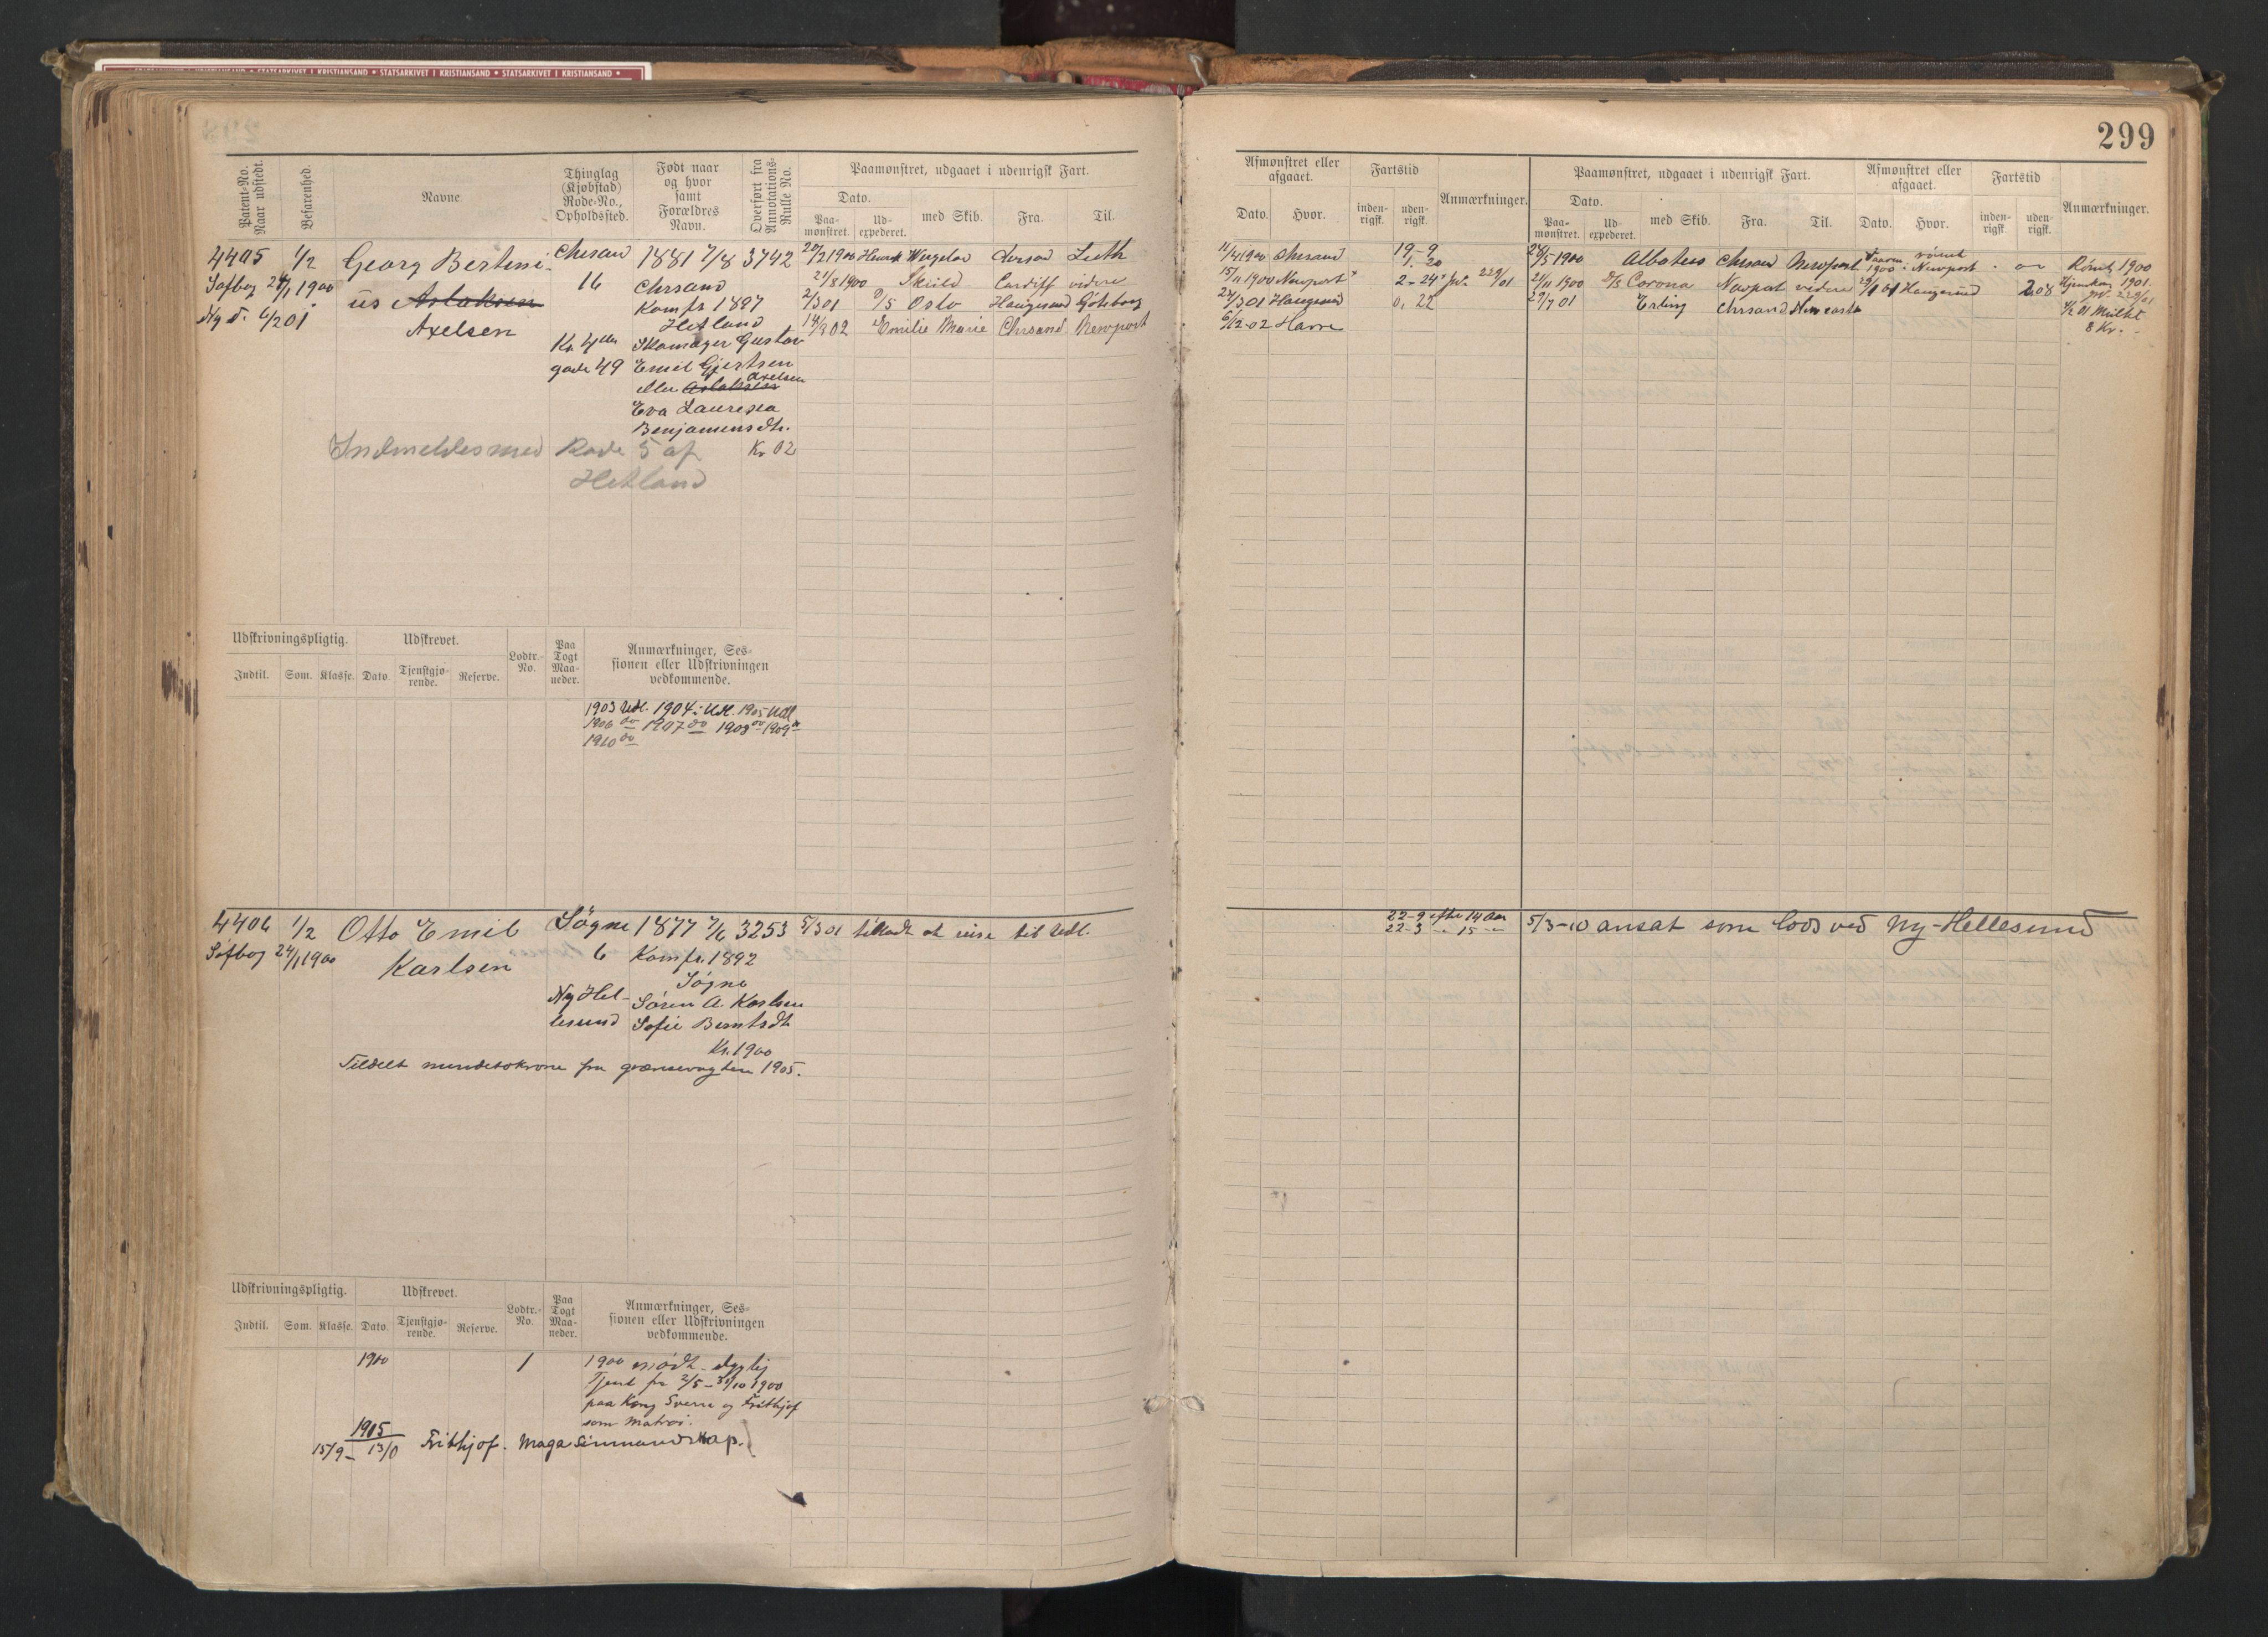 STATSARKIVET I KRISTIANSAND * STATSARKIVET I KRISTIANSAND * STATSARKIVET I KRISTIANSAND *
299
Patent-No. Naar udstedt.
Befarenhed.
Navne
Thinglag (Kjøbstad) Rode-No., Opholdssted.
Født naar og hvor samt Forældres Navn.
Overført fra Annotations-Rulle No.
Paamønstret, udgaaet i udenrigsk Fart.
Dato.
Paa-mønstret.
Ud-expederet.
med Skib.
Fra.
Til.
Afmønstret eller afgaaet.
Dato.
Hvor.
Fartstid
inden-rigsk.
uden-rigsk.
Anmærkninger.
Paamønstret, udgaaet i udenrigsk Fart.
Dato.
Paa-mønstret.
Ud-expederet.
med Skib.
Fra.
Til.
Afmønstret eller afgaaet.
Dato.
Hvor.
Fartstid
inden-rigsk.
uden-rigsk.
Anmærkninger.
4405 1/2 Georg Bertini- Chrsand 1881 7/8 3742
Søfbog 24/1 1900 us Aslaksen 16 Chrsand
Ny d. 6/2 01 Axelsen Komf. 1897
Hetland
Skomager Gustav
gade 49 Emil Gjertsen
eller Aslaksen Axelsen
Eva
Benjaminsdtr.
Indmeldes med Rode 5 af Kr 02
Hetland
20/2 1900 Henrik Wergeland Chrsand Leith
21/8 1900 Skiold Cardiff videre
2/3 01 D/S Oslo Haugesund Göteborg
14/2 02 Emilie Marie Chrsand Newport
11/4 1900 Chrsand 19-9
15/11 1900 Newport 2-24
22/3 01 Haugesund 0. 22
6/12-02 Havre
28/5 1900 Albatros Chrsand Newport 1900 römt Newport Römt 1900
21/11 1900 D/S Corona Newport videre Haugesund 2.08 1901
29/7 01 Erling Chrsand Newcastle 01 Mulkt
8 Kr.
Udskrivningspligtig.
Udskrevet.
Indtil.
Som.
Klasse.
Dato.
Tjenstgjø-rende.
Reserve.
Lodtr.-No.
Paa Togt Maa-neder.
Anmærkninger, Ses-sionen eller Udskrivningen vedkommende.
1903 Udl. 1904 Udl. 1905 Udl
1906 do 1907 do 1908 do 1909 do
1910 do
4406 1/2 Otto Emil Søgne 1877 7/6 3253 5/3 01 tilladt at reise til Udl.
Søfbog 24/1 1900 Karlsen 6 Komf. 1892
Søgne
Ny Hel- Søren A. Karlsen
lesund Sofie Berntsdt
Kr. 1900
Tildelt mindetokrone fra grænsevagten 1905.
22-9 efter 14 Aar
22-3 " 15 "
5/3-10 ansat som lods ved Ny-Hellesund
Udskrivningspligtig.
Udskrevet.
Indtil.
Som.
Klasse.
Dato.
Tjenstgjø-rende.
Reserve.
Lodtr.-No.
Paa Togt Maa-neder.
Anmærkninger, Ses-sionen eller Udskrivningen vedkommende.
1900 1 1900 mödt. dygtig
Tjent fra 2/5-31/10 1900
paa Kong Sverre og Frithjof
som matros.
1905
15/9 - 13/10 Frithjof. Magasinmandskap.